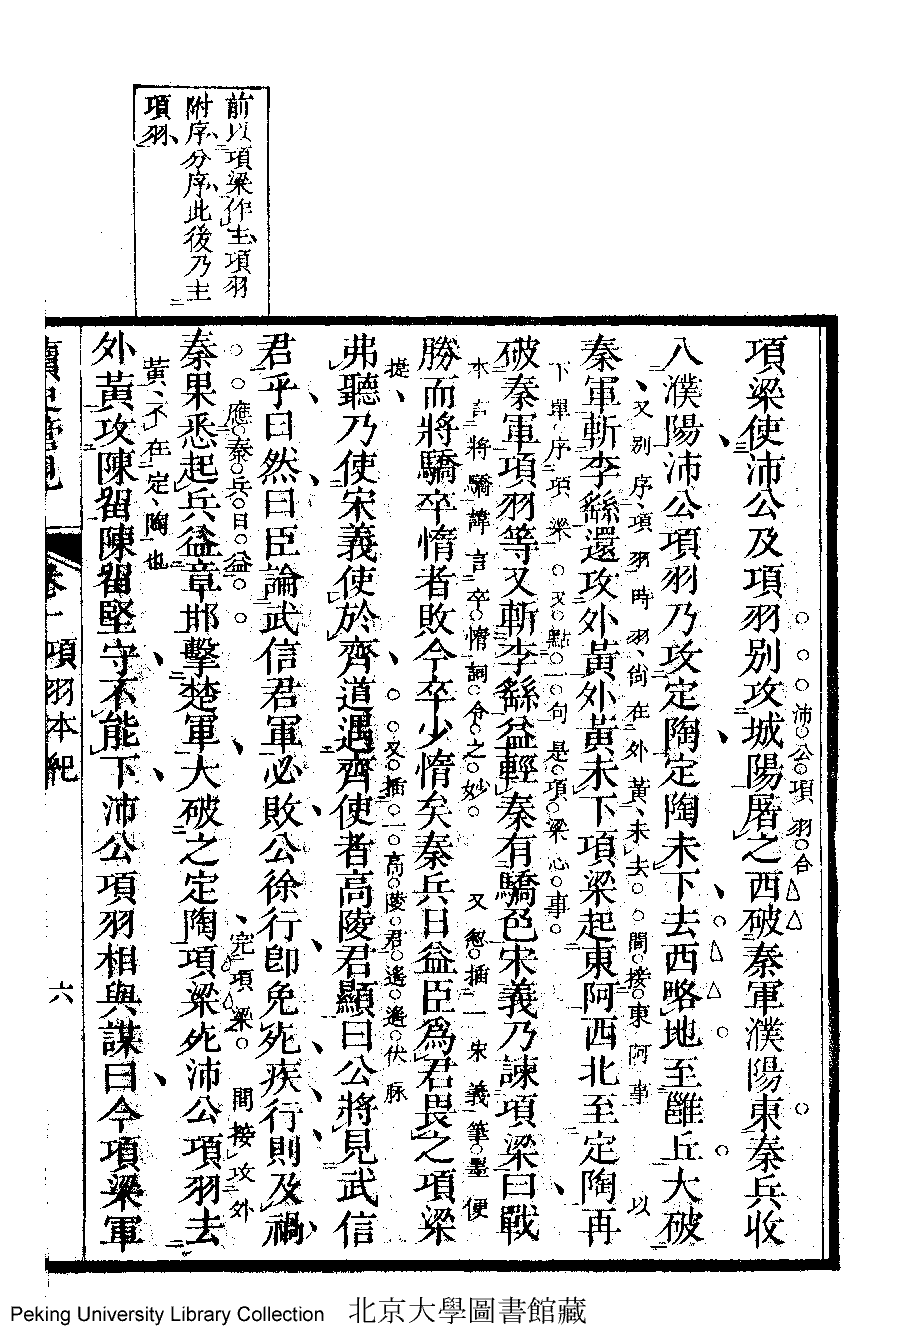 前以項梁作主項羽
附序分序此後乃主
項羽
項梁使沛公及項羽別攻城陽屠之西破秦軍濮陽東秦兵收
沛公項羽合
入濮陽沛公項羽乃攻定陶定陶未下去西略地至雝丘大破
又別序項羽時羽尙在外黃未去 間接東阿事 以
秦軍斬李繇還攻外黃外黃未下項梁起東阿西北至定陶再
下單序項梁 又點一句是項梁心事
破秦軍項羽等又斬李繇益輕秦有驕色宋義乃諫項梁曰戰
本言將驕諱言卒惰詞令之妙 又忽插一宋義筆墨便
勝而將驕卒惰者敗今卒少惰矣秦兵日益臣爲君畏之項梁
提 又插一高陵君遙遙伏脉
弗聽乃使宋義使於齊道遇齊使者高陵君顯曰公將見武信
君乎曰然曰臣論武信君軍必敗公徐行卽免死疾行則及禍
應秦兵日益 完項梁 間接攻外
秦果悉起兵益章邯擊楚軍大破之定陶項梁死沛公項羽去
黃不在定陶也
外黃攻陳留陳留堅守不能下沛公項羽相與謀曰今項梁軍
讀史管見 卷一項羽本紀 六
Peking University Library Collection 北京大學圖書館藏